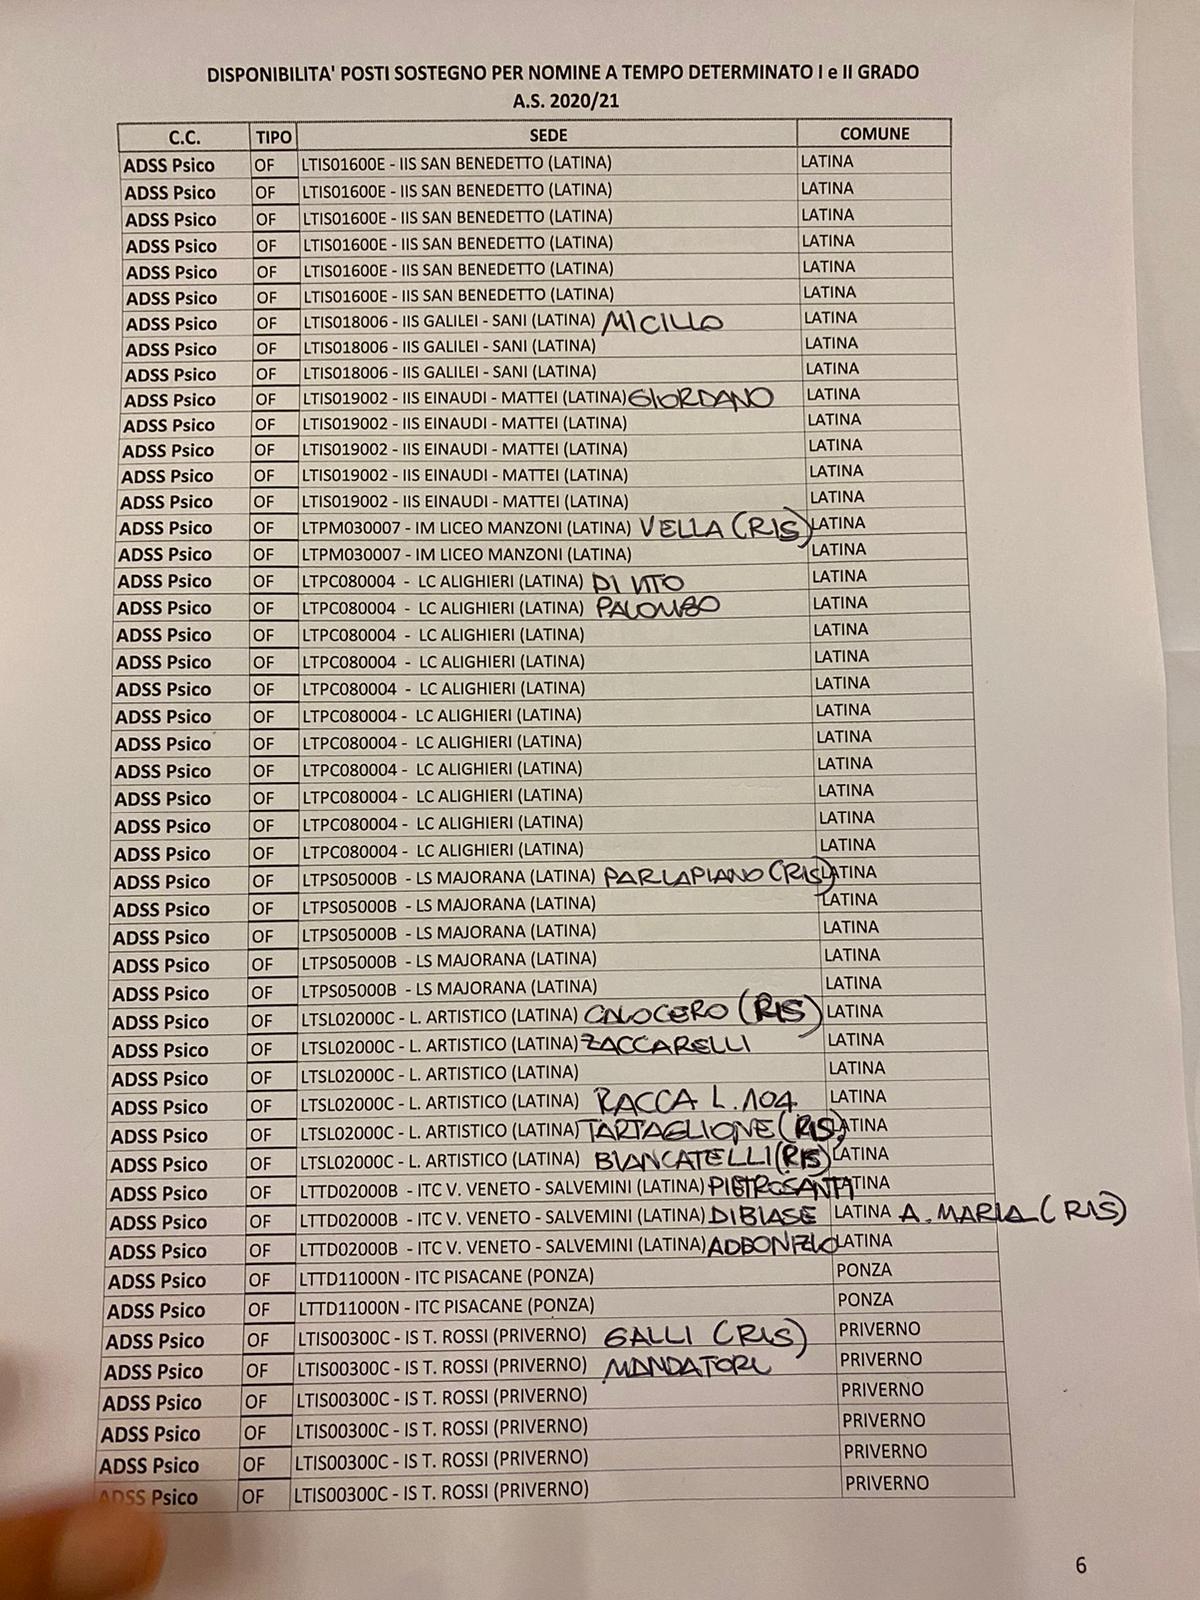 DISPONIBILITA' POSTI SOSTEGNO PER NOMINE A TEMPO DETERMINATO I e II GRADO
A.S. 2020/21
C.C. TIPO SEDE COMUNE
ADSS Psico OF LTIS01600E - IIS SAN BENEDETTO (LATINA) LATINA
ADSS Psico OF LTIS01600E - IIS SAN BENEDETTO (LATINA) LATINA
ADSS Psico OF LTIS01600E - IIS SAN BENEDETTO (LATINA) LATINA
ADSS Psico OF LTIS01600E - IIS SAN BENEDETTO (LATINA) LATINA
ADSS Psico OF LTIS01600E - IIS SAN BENEDETTO (LATINA) LATINA
ADSS Psico OF LTIS01600E - IIS SAN BENEDETTO (LATINA) LATINA
ADSS Psico OF LTIS018006 - IIS GALILEI - SANI (LATINA) MICILLO LATINA
ADSS Psico OF LTIS018006 - IIS GALILEI - SANI (LATINA) LATINA
ADSS Psico OF LTIS018006 - IIS GALILEI - SANI (LATINA) LATINA
ADSS Psico OF LTIS019002 - IIS EINAUDI - MATTEI (LATINA) GIORDANO LATINA
ADSS Psico OF LTIS019002 - IIS EINAUDI - MATTEI (LATINA) LATINA
ADSS Psico OF LTIS019002 - IIS EINAUDI - MATTEI (LATINA) LATINA
ADSS Psico OF LTIS019002 - IIS EINAUDI - MATTEI (LATINA) LATINA
ADSS Psico OF LTIS019002 - IIS EINAUDI - MATTEI (LATINA) LATINA
ADSS Psico OF LTPM030007 - IM LICEO MANZONI (LATINA) VELLA (RIS) LATINA
ADSS Psico OF LTPM030007 - IM LICEO MANZONI (LATINA) LATINA
ADSS Psico OF LTPC080004 - LC ALIGHIERI (LATINA) DI VITO LATINA
ADSS Psico OF LTPC080004 - LC ALIGHIERI (LATINA) PALOMBO LATINA
ADSS Psico OF LTPC080004 - LC ALIGHIERI (LATINA) LATINA
ADSS Psico OF LTPC080004 - LC ALIGHIERI (LATINA) LATINA
ADSS Psico OF LTPC080004 - LC ALIGHIERI (LATINA) LATINA
ADSS Psico OF LTPC080004 - LC ALIGHIERI (LATINA) LATINA
ADSS Psico OF LTPC080004 - LC ALIGHIERI (LATINA) LATINA
ADSS Psico OF LTPC080004 - LC ALIGHIERI (LATINA) LATINA
ADSS Psico OF LTPC080004 - LC ALIGHIERI (LATINA) LATINA
ADSS Psico OF LTPC080004 - LC ALIGHIERI (LATINA) LATINA
ADSS Psico OF LTPC080004 - LC ALIGHIERI (LATINA) LATINA
ADSS Psico OF LTPS05000B - LS MAJORANA (LATINA) PARLAPIANO (RIS) LATINA
ADSS Psico OF LTPS05000B - LS MAJORANA (LATINA) LATINA
ADSS Psico OF LTPS05000B - LS MAJORANA (LATINA) LATINA
ADSS Psico OF LTPS05000B - LS MAJORANA (LATINA) LATINA
ADSS Psico OF LTPS05000B - LS MAJORANA (LATINA) LATINA
ADSS Psico OF LTSL02000C - L. ARTISTICO (LATINA) CALOCERO (RIS) LATINA
ADSS Psico OF LTSL02000C - L. ARTISTICO (LATINA) ZACCARELLI LATINA
ADSS Psico OF LTSL02000C - L. ARTISTICO (LATINA) LATINA
ADSS Psico OF LTSL02000C - L. ARTISTICO (LATINA) RACCA L. 104 LATINA
ADSS Psico OF LTSL02000C - L. ARTISTICO (LATINA) TARTAGLIONE (RIS) LATINA
ADSS Psico OF LTSL02000C - L. ARTISTICO (LATINA) BIANCATELLI (RIS) LATINA
ADSS Psico OF LTTD02000B - ITC V. VENETO - SALVEMINI (LATINA) PIETROSANTI LATINA
ADSS Psico OF LTTD02000B - ITC V. VENETO - SALVEMINI (LATINA) DI BIASE LATINA A. MARIA (RIS)
ADSS Psico OF LTTD02000B - ITC V. VENETO - SALVEMINI (LATINA) LATINA
ADSS Psico OF LTTD11000N - ITC PISACANE (PONZA) PONZA
ADSS Psico OF LTTD11000N - ITC PISACANE (PONZA) PONZA
ADSS Psico OF LTIS00300C - IS T. ROSSI (PRIVERNO) GALLI (RIS) PRIVERNO
ADSS Psico OF LTIS00300C - IS T. ROSSI (PRIVERNO) MANDATORI PRIVERNO
ADSS Psico OF LTIS00300C - IS T. ROSSI (PRIVERNO) PRIVERNO
ADSS Psico OF LTIS00300C - IS T. ROSSI (PRIVERNO) PRIVERNO
ADSS Psico OF LTIS00300C - IS T. ROSSI (PRIVERNO) PRIVERNO
ADSS Psico OF LTIS00300C - IS T. ROSSI (PRIVERNO) PRIVERNO
6